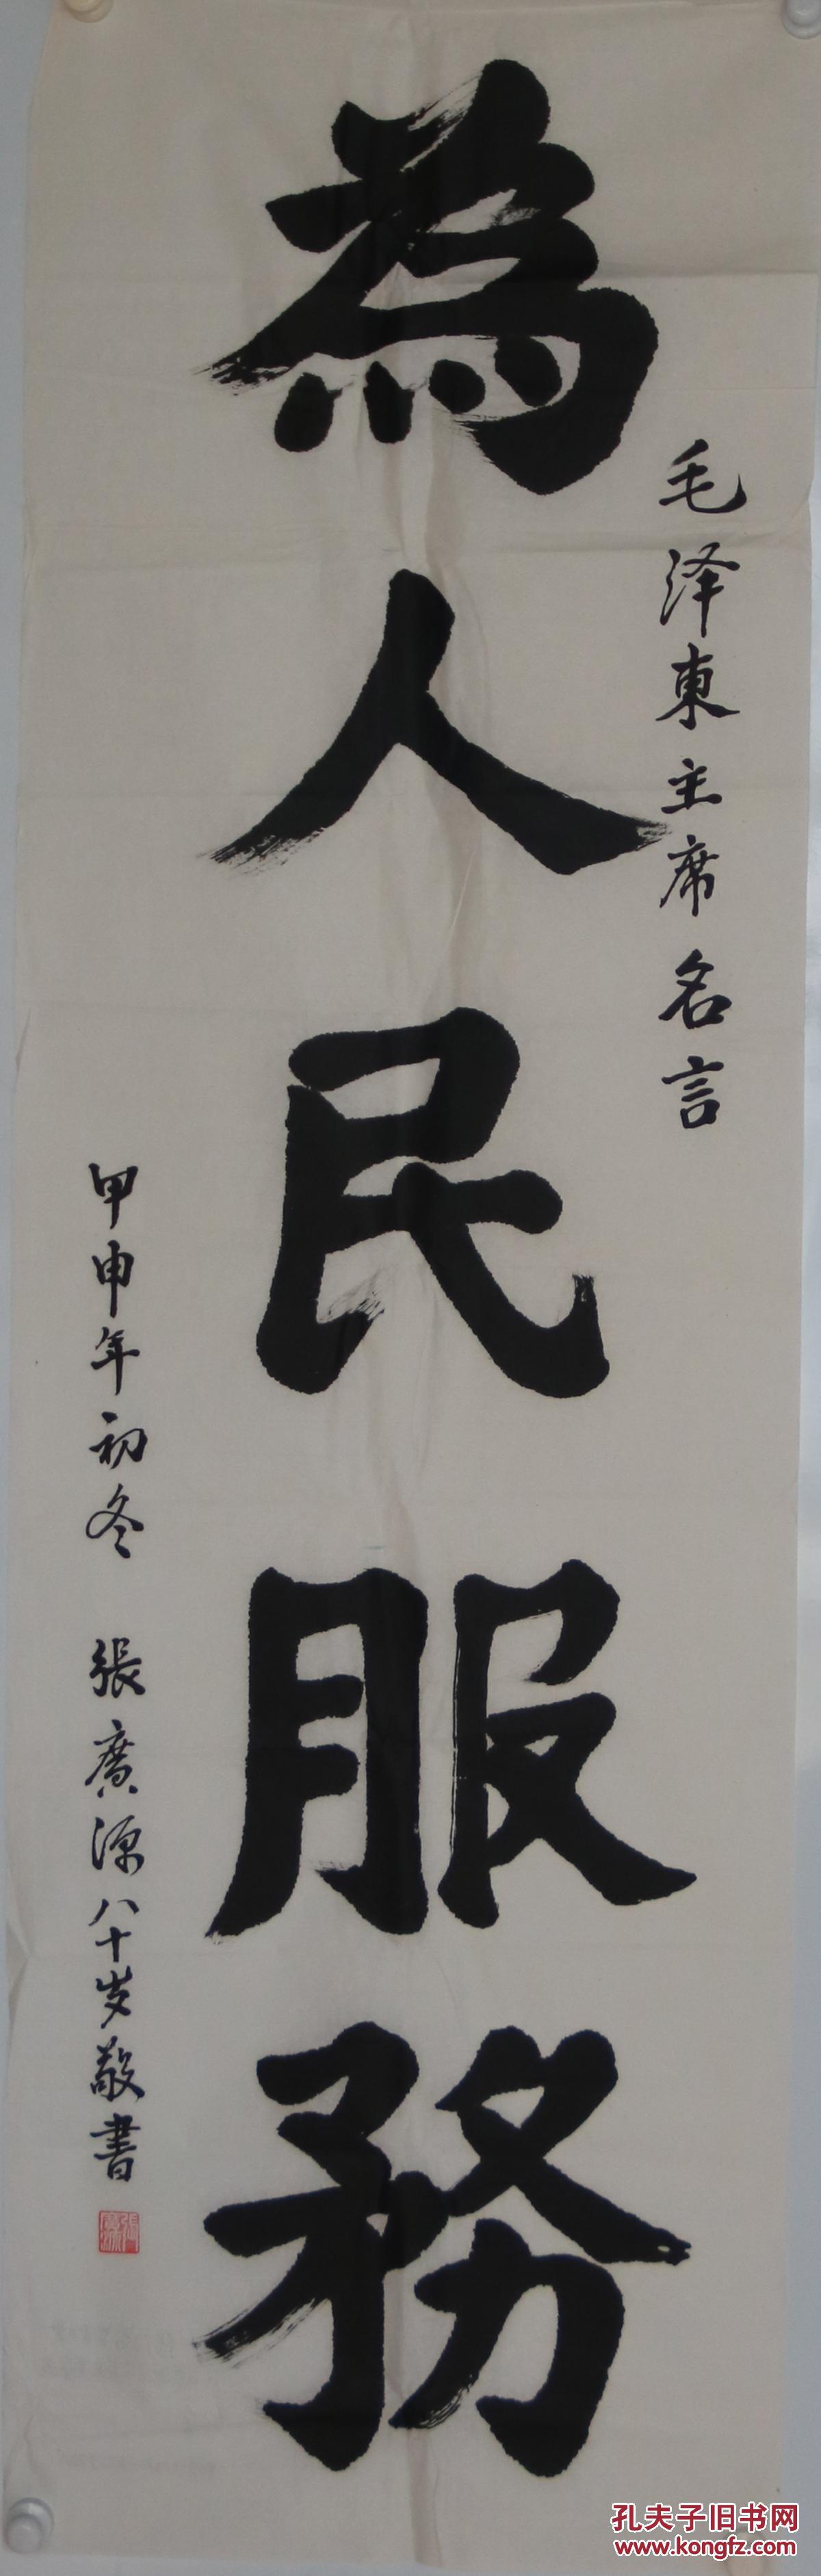 毛泽東主席名言
為人民服務
甲申年初冬 張廣源八十岁敬書
孔夫子旧书网
www.kongfz.com